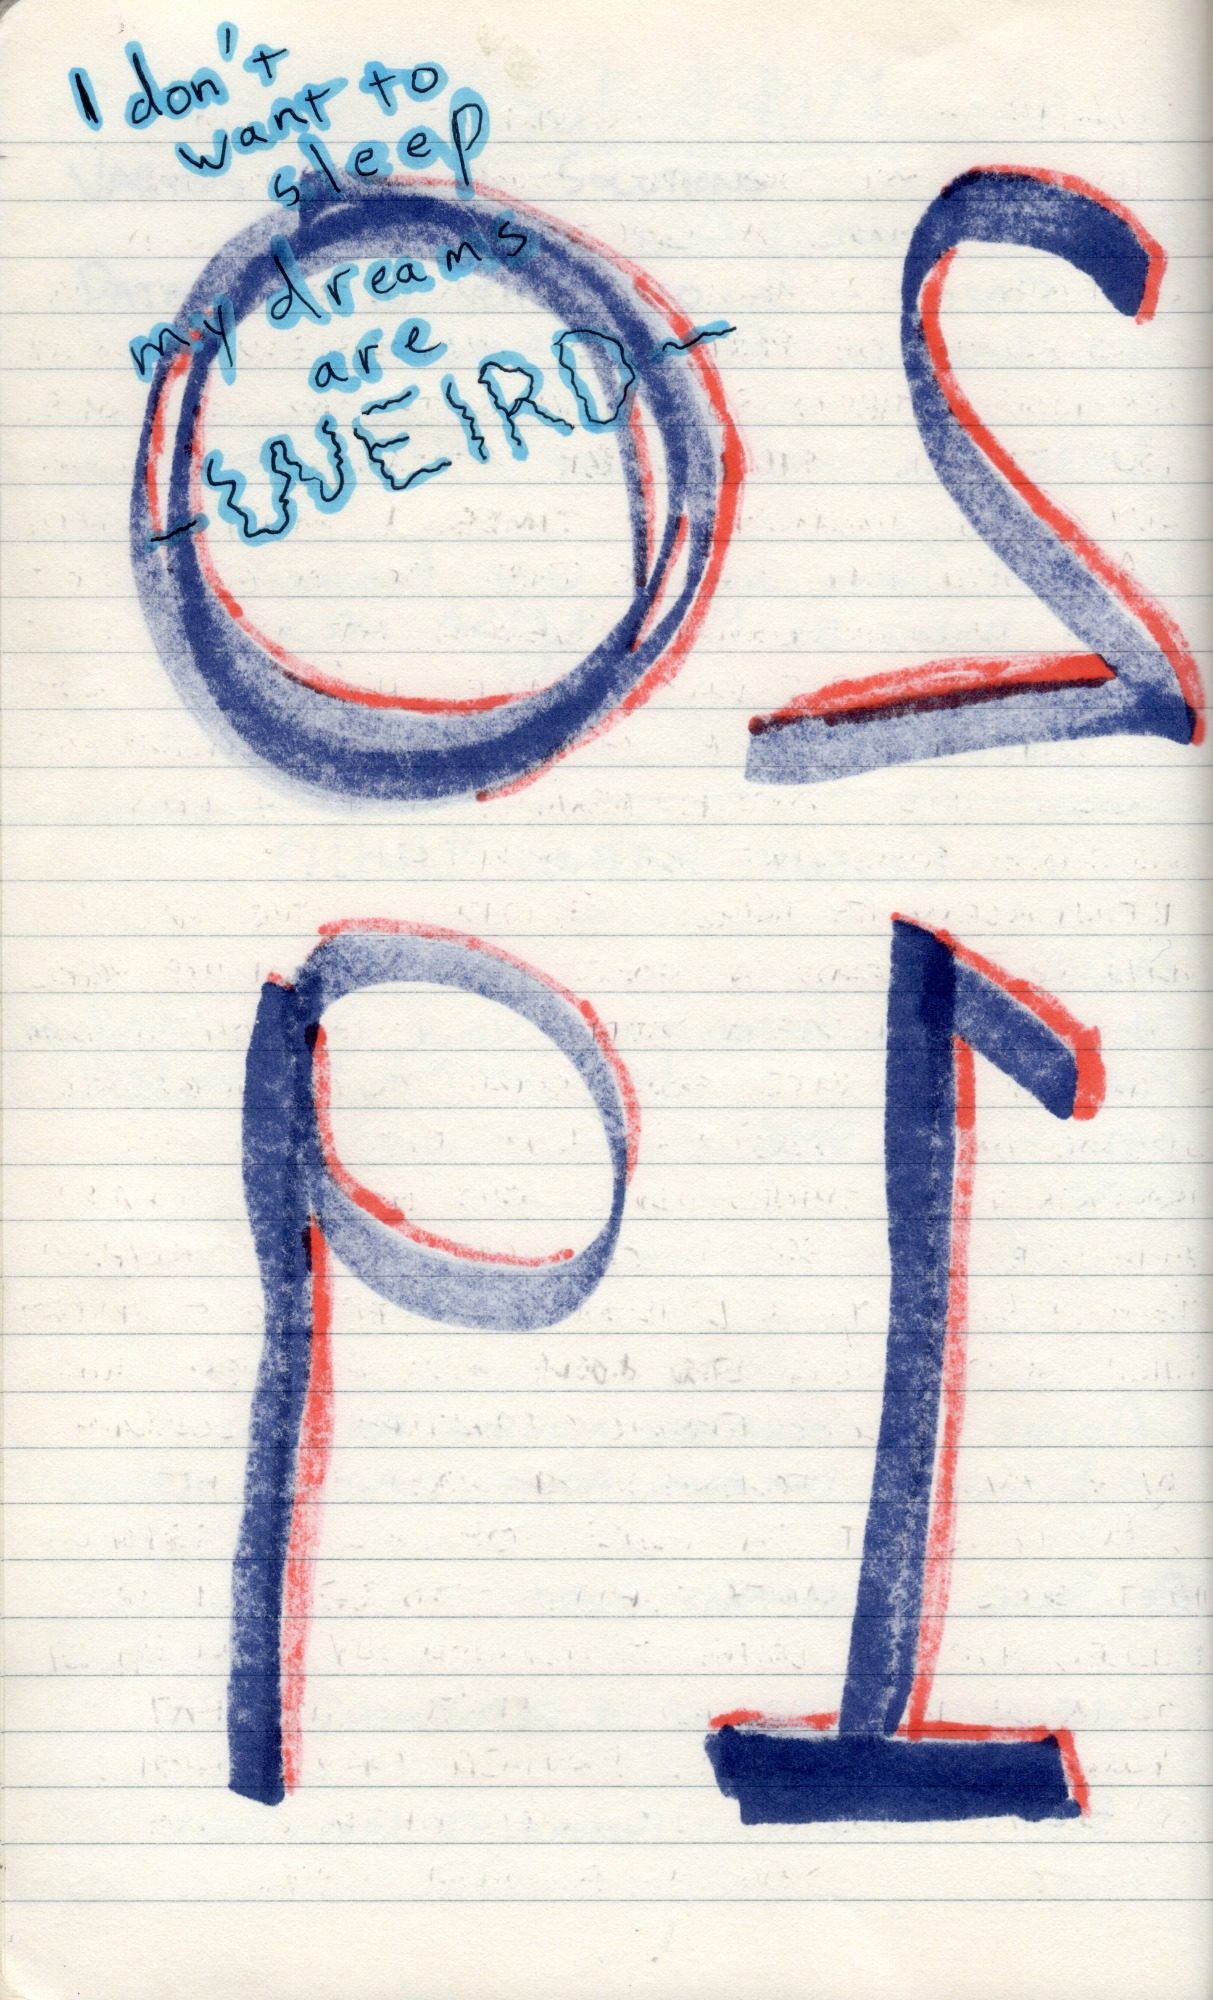 I don't
want to
sleep
my dreams
are
-WEIRD-
20
19